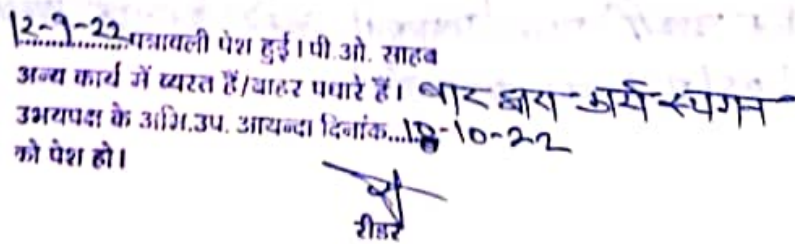 12-9-22 पत्रावली पेश हुई। पी.ओ. साहब
अन्य कार्य में व्यस्त हैं/बाहर पधारे हैं। बार द्वारा कार्य स्थगन
उभयपक्ष के अभि.उप. आयन्दा दिनांक...18-10-22
को पेश हो।
रीडर